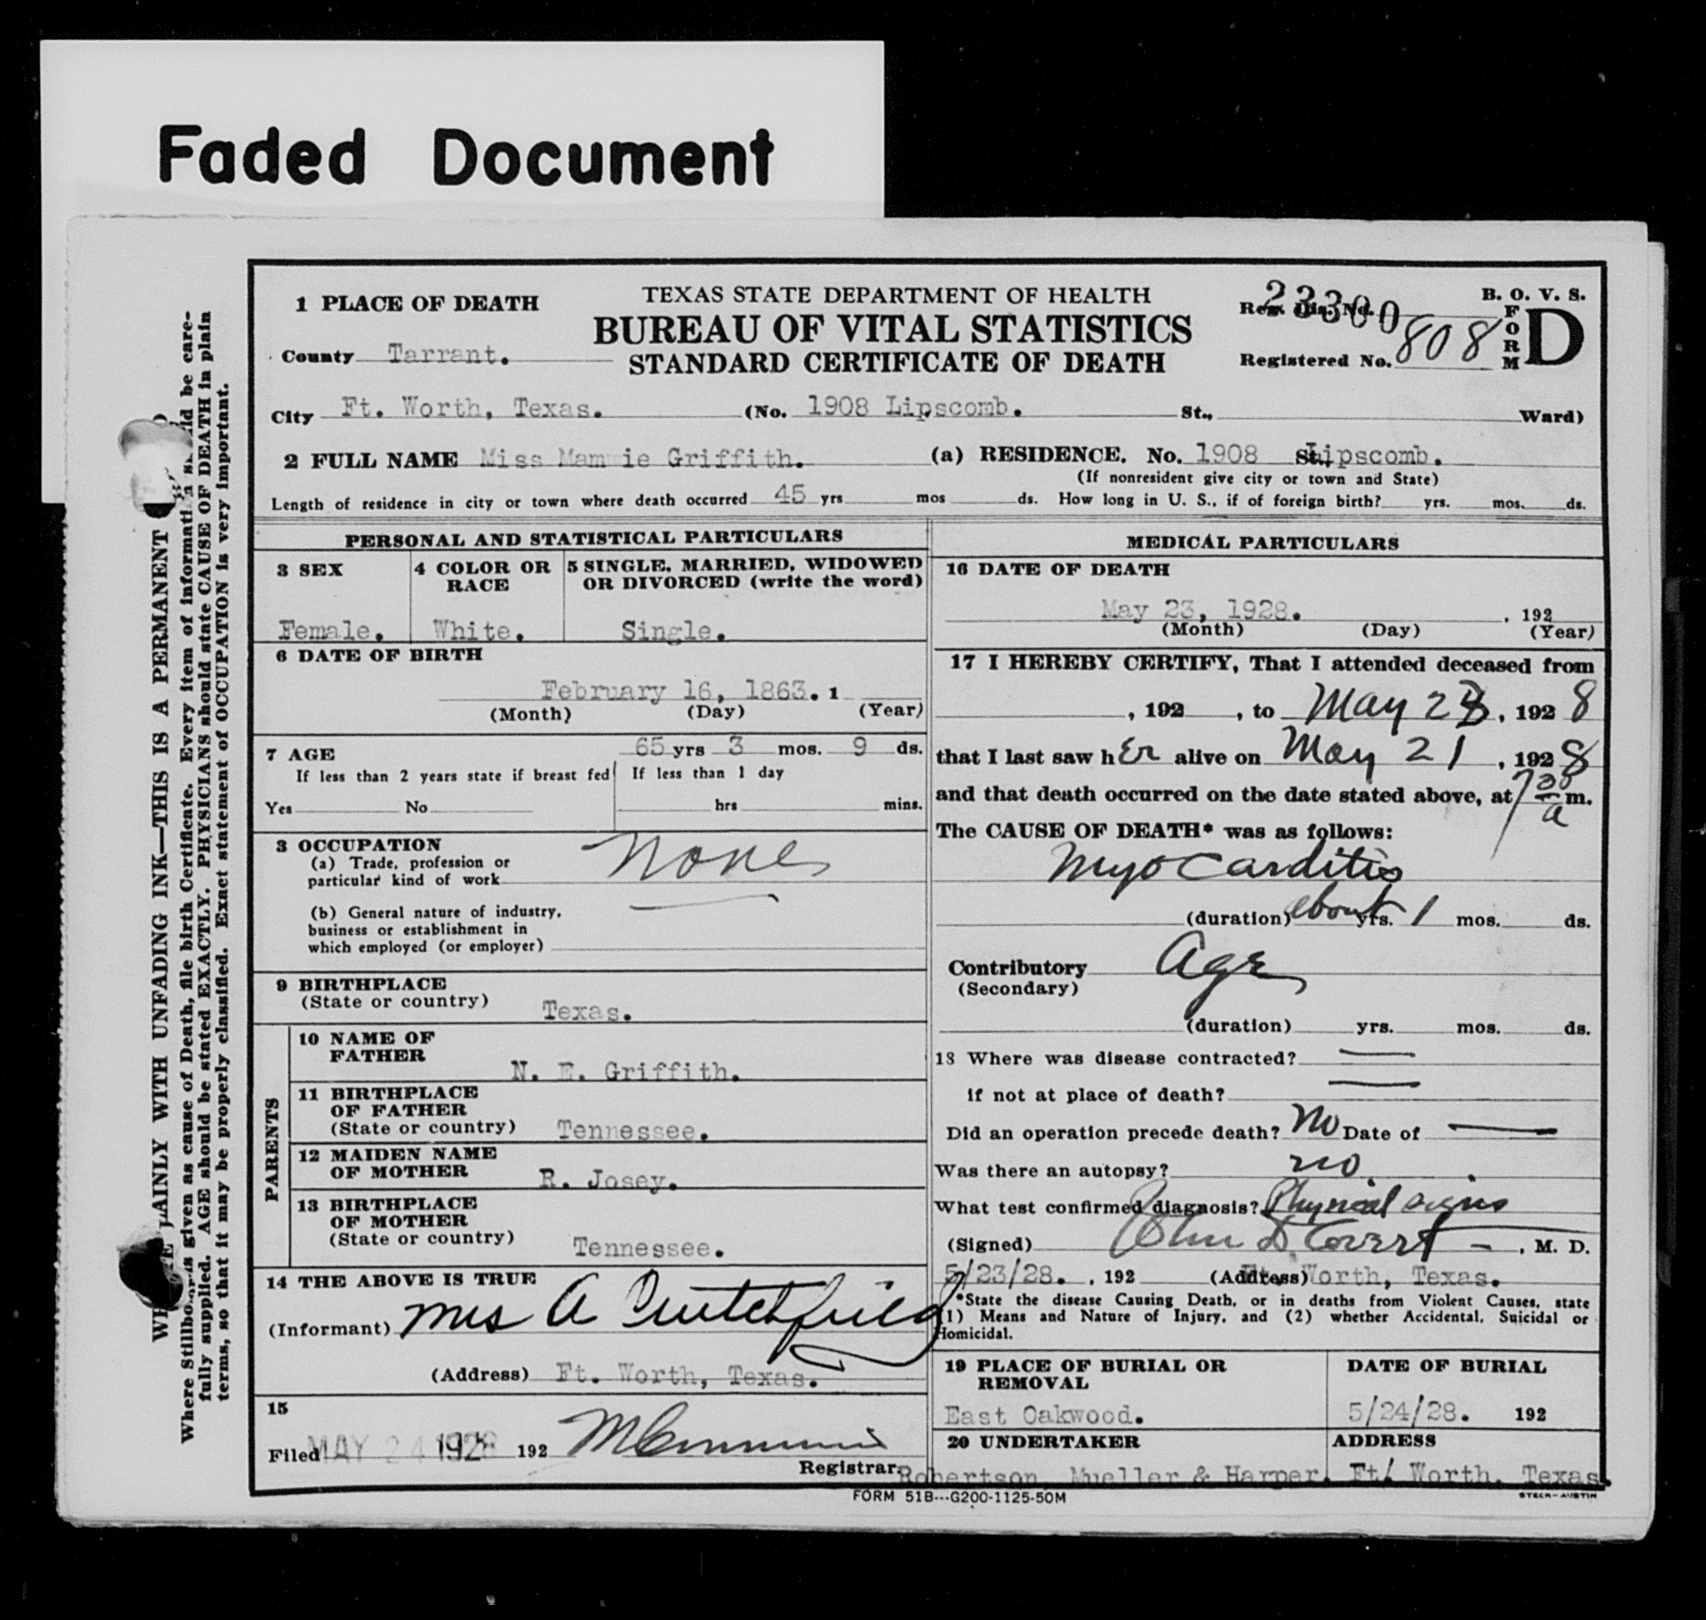 Faded Document
1 PLACE OF DEATH
TEXAS STATE DEPARTMENT OF HEALTH
BUREAU OF VITAL STATISTICS
STANDARD CERTIFICATE OF DEATH
23300
B. O. V. S.
FORM D
County Tarrant.
Registered No. 808
City Ft. Worth, Texas. (No. 1908 Lipscomb. St., Ward)
2 FULL NAME Miss Mammie Griffith. (a) RESIDENCE. No. 1908 St. Lipscomb.
(If nonresident give city or town and State)
Length of residence in city or town where death occurred 45 yrs mos ds. How long in U. S., if of foreign birth? yrs. mos. ds.
PERSONAL AND STATISTICAL PARTICULARS
3 SEX
Female.
4 COLOR OR RACE
White.
5 SINGLE, MARRIED, WIDOWED
OR DIVORCED (write the word)
Single.
6 DATE OF BIRTH
February 16, 1863. 1
(Month) (Day) (Year)
7 AGE 65 yrs 3 mos. 9 ds.
If less than 2 years state if breast fed
If less than 1 day
Yes No hrs mins.
8 OCCUPATION
(a) Trade, profession or
particular kind of work None
(b) General nature of industry,
business or establishment in
which employed (or employer)
9 BIRTHPLACE
(State or country) Texas.
PARENTS
10 NAME OF
FATHER N. E. Griffith.
11 BIRTHPLACE
OF FATHER
(State or country) Tennessee.
12 MAIDEN NAME
OF MOTHER R. Josey.
13 BIRTHPLACE
OF MOTHER
(State or country) Tennessee.
14 THE ABOVE IS TRUE
(Informant) Mrs A Crutchfield
(Address) Ft. Worth, Texas.
15
Filed MAY 24 1928 192
Registrar
MEDICAL PARTICULARS
16 DATE OF DEATH
May 23, 1928. , 192
(Month) (Day) (Year)
17 I HEREBY CERTIFY, That I attended deceased from
, 192 , to May 23, 1928
that I last saw her alive on May 21, 1928
and that death occurred on the date stated above, at 7 30 a m.
The CAUSE OF DEATH* was as follows:
Myocarditis
(duration) about yrs. 1 mos. ds.
Contributory Age
(Secondary)
(duration) yrs. mos. ds.
18 Where was disease contracted? —
if not at place of death? —
Did an operation precede death? No Date of —
Was there an autopsy? no
What test confirmed diagnosis? Physical signs
(Signed) John D. Covert , M. D.
5/23/28. , 192 (Address) Ft. Worth, Texas.
*State the disease Causing Death, or in deaths from Violent Causes, state
(1) Means and Nature of Injury, and (2) whether Accidental, Suicidal or
Homicidal.
19 PLACE OF BURIAL OR
REMOVAL
East Oakwood.
DATE OF BURIAL
5/24/28. 192
20 UNDERTAKER
Robertson Mueller & Harper.
ADDRESS
Ft. Worth, Texas.
FORM 51B---G200-1125-50M
STECK-AUSTIN
PLAINLY WITH UNFADING INK—THIS IS A PERMANENT
given as cause of Death, file birth Certificate. Every item of information should be care-
fully supplied. AGE should be stated EXACTLY. PHYSICIANS should state CAUSE OF DEATH in plain
terms, so that it may be properly classified. Exact statement of OCCUPATION is very important.